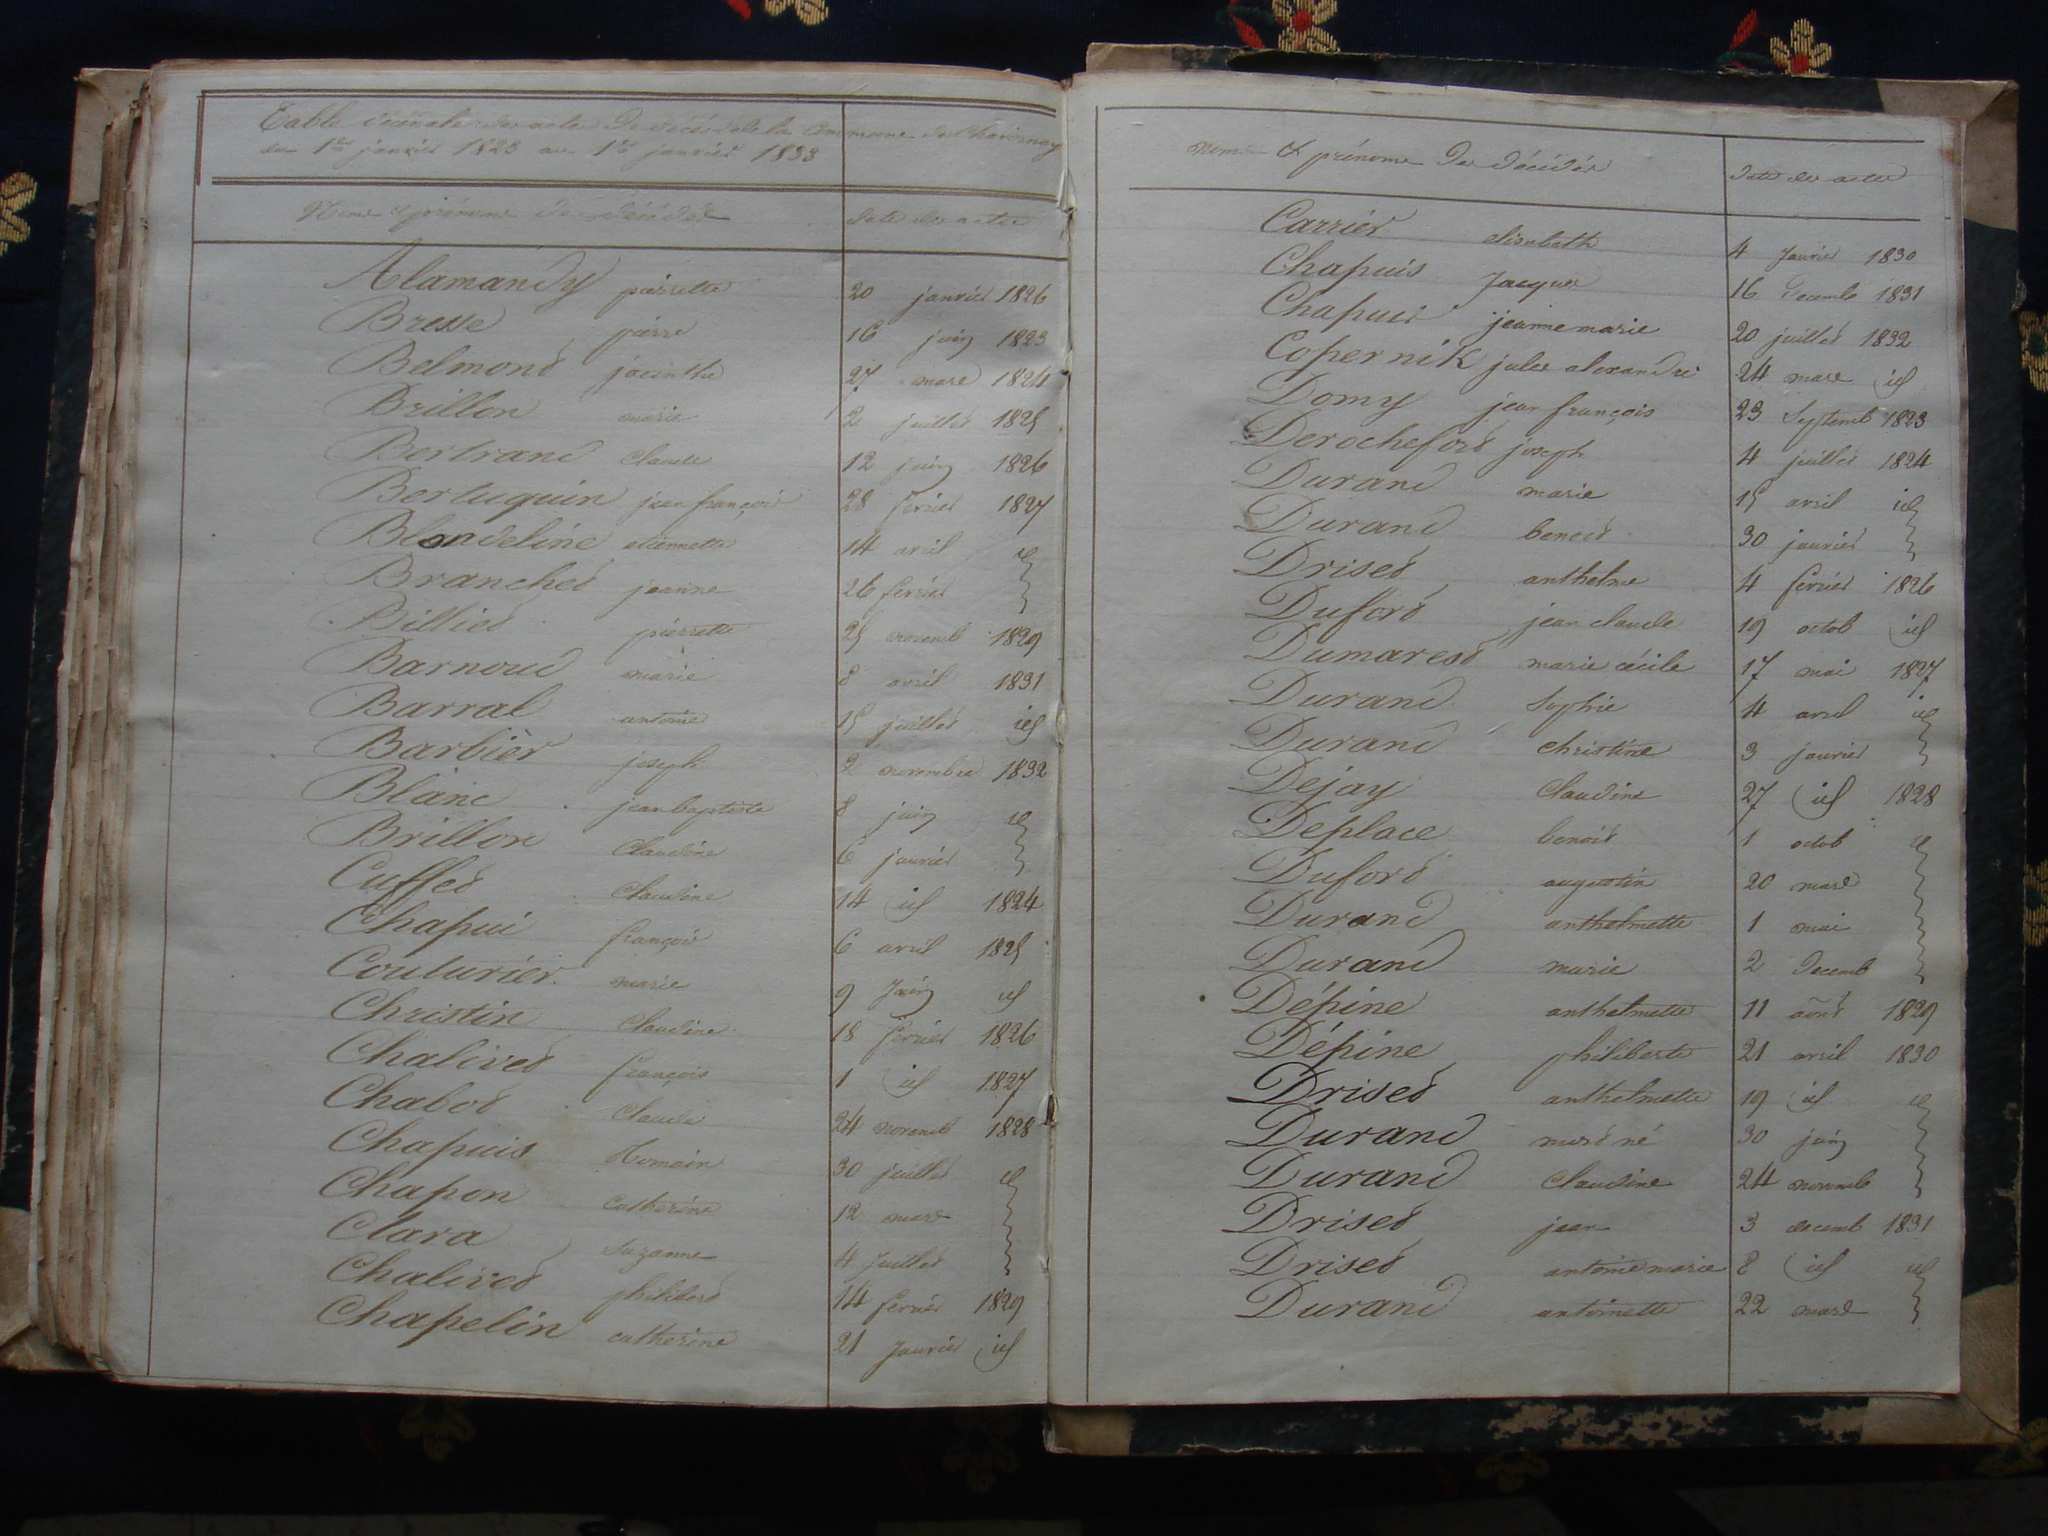 Table décénale des actes De décés de la Commune de Chavornay
du 1er janvier 1823 au 1er janvier 1833
Noms & prénoms des décédés date des actes
Alamandy pierrette 20 janvier 1826
Bresse pierre 16 juin 1823
Belmond jacinthe 27 mars 1824
Brillon marie 2 juillet 1825
Bertrand Claude 12 juin 1826
Bertuquin jean françois 28 fevrier 1827
Blondeline etiennette 14 avril id
Branched jeanne 26 fevrier
Billied pierrette 25 novemb 1829
Barnoud marie 8 avril 1831
Barral antoine 15 juillet id
Barbier joseph 2 novembre 1832
Blanc jean baptiste 8 juin id
Brillon Claudine 6 janvier
Cuffed Claudine 14 id 1824
Chapui françois 6 avril 1825
Couturier marie 9 Juin id
Christin Claudine 18 fevrier 1826
Chalived françois 1 id 1827
Chabod Claude 24 novemb 1828
Chapuis Romain 30 juillet id
Chapon catherine 12 mars
Clara Suzanne 4 Juillet
Chalived philibert 14 fevrier 1829
Chapelin catherine 21 Janvier id
noms & prénoms Des décédés date des actes
Carrier elisabeth 4 Janvier 1830
Chapuis Jacques 16 Decemb 1831
Chapuis jeanne marie 20 juillet 1832
Copernik jules alexandre 24 mars id
Domy jean françois 23 Septemb 1823
Derochefort joseph 4 juillet 1824
Durand marie 15 avril id
Durand benoit 30 janvier
Drised anthelme 4 fevrier 1826
Duford jean claude 19 octob id
Dumared marie cécile 17 mai 1827
Durand Sophie 4 avril id
Durand christine 3 janvier
Dejay Claudine 27 id 1828
Deplace benoit 1 octob id
Duford augustin 20 mars
Durand anthelmette 1 mai
Durand marie 2 Decemb
Dépine anthelmette 11 août 1829
Dépine philiberte 21 avril 1830
Drised anthelmette 19 id id
Durand mort né 30 juin
Durand Claudine 24 novemb
Drised jean 3 decemb 1831
Drised antoine marie 8 id id
Durand antoinette 22 mars